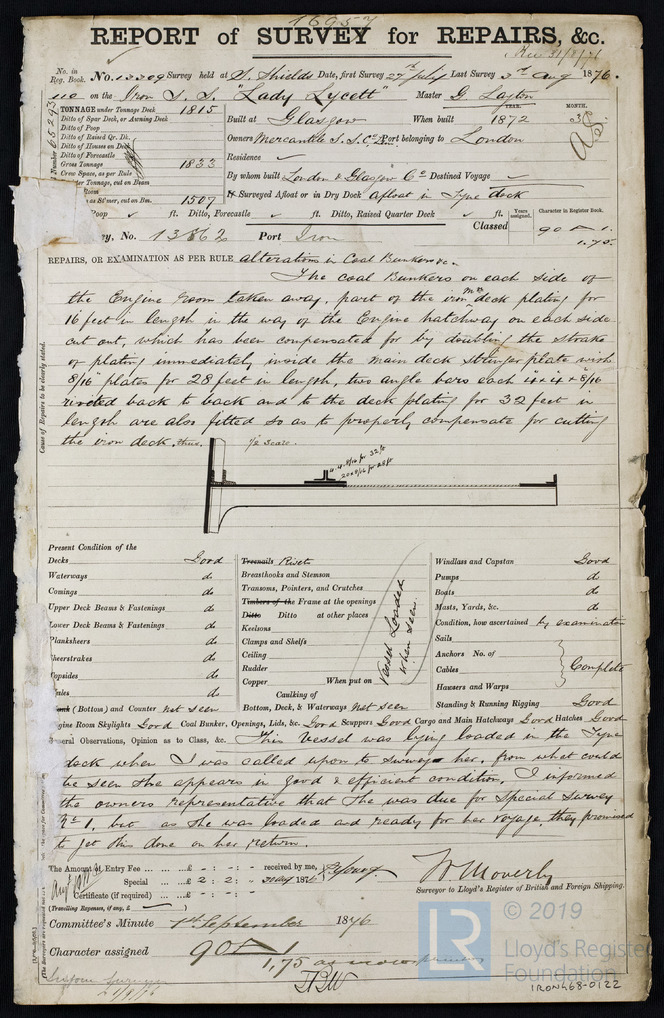 16957
REPORT of SURVEY for REPAIRS, &c.
Rec 31/8/76
No. in Reg. Book. No. 13309 Survey held at S. Shields Date, first Survey 27th July Last Survey 3rd Aug 1876.
110 on the Iron S. S. "Lady Lycett" Master G. Layton
TONNAGE under Tonnage Deck 1815
Ditto of Spar Deck, or Awning Deck
Ditto of Poop
Ditto of Raised Qr. Dk.
Ditto of Houses on Deck
Ditto of Forecastle
Gross Tonnage 1833
Crew Space, as per Rule
1507
65293
YEAR. MONTH.
Built at Glasgow When built 1872 3
Owners Mercantile S. S. Co. Ld. Port belonging to London
Residence
By whom built London & Glasgow Co. Destined Voyage
If Surveyed Afloat or in Dry Dock afloat in Tyne dock
Poop ft. Ditto, Forecastle ft. Ditto, Raised Quarter Deck ft.
Classed Years assigned. Character in Register Book.
90 A 1.
1.75.
ry. No. 13862 Port Iron
REPAIRS, OR EXAMINATION AS PER RULE alterations in Coal Bunkers &c.
The coal Bunkers on each side of
the Engine room taken away, part of the iron mn deck plating for
16 feet in length in the way of the Engine hatchway on each side
cut out, which has been compensated for by doubling the strake
of plating immediately inside the main deck stringer plate with
8/16 plates for 28 feet in length, two angle bars each 4 x 4 x 8/16
rivited back to back and to the deck plating for 32 feet in
length are also fitted so as to properly compensate for cutting
the iron deck, thus. 1/2 scale.
Cause of Repairs to be clearly stated.
4.4.8/16 for 32 ft
20 x 8/16 for 28 ft
Present Condition of the
Decks Good
Waterways do
Comings do
Upper Deck Beams & Fastenings do
Lower Deck Beams & Fastenings do
Planksheers do
Sheerstrakes do
Topsides do
ales do
ank (Bottom) and Counter not seen
Treenails Rivets
Breasthooks and Stemson
Transoms, Pointers, and Crutches
Timbers of the Frame at the openings
Ditto Ditto at other places
Keelsons
Clamps and Shelfs
Ceiling
Rudder
Copper When put on
Caulking of
Bottom, Deck, & Waterways not seen
Vessel Loaded
when seen.
Windlass and Capstan Good
Pumps do
Boats do
Masts, Yards, &c. do
Condition, how ascertained by examination
Sails
Anchors No. of
Cables
Hausers and Warps
Complete
Standing & Running Rigging Good
gine Room Skylights Good Coal Bunker, Openings, Lids, &c. Good Scuppers Good Cargo and Main Hatchways Good Hatches Good
eneral Observations, Opinion as to Class, &c. This Vessel was lying loaded in the Tyne
dock when I was called upon to survey her, from what could
be seen she appears in good & efficient condition, I informed
the owners representative that she was due for Special Survey
No 1, but as she was loaded and ready for her voyage, they promised
to get this done on her return.
The Amount of Entry Fee ... £ - : - : - received by me,
Special ... £ 2 : 2 : - 3rd Aug 1876
Certificate (if required) ... £ - : - : -
(Travelling Expenses, if any, £ )
W Moverly
Surveyor to Lloyd's Register of British and Foreign Shipping.
Committee's Minute 1st September 1876
Character assigned 90 A 1
1,75 as now
LR
© 2019
Lloyd's Register
Foundation
IRON468-0122